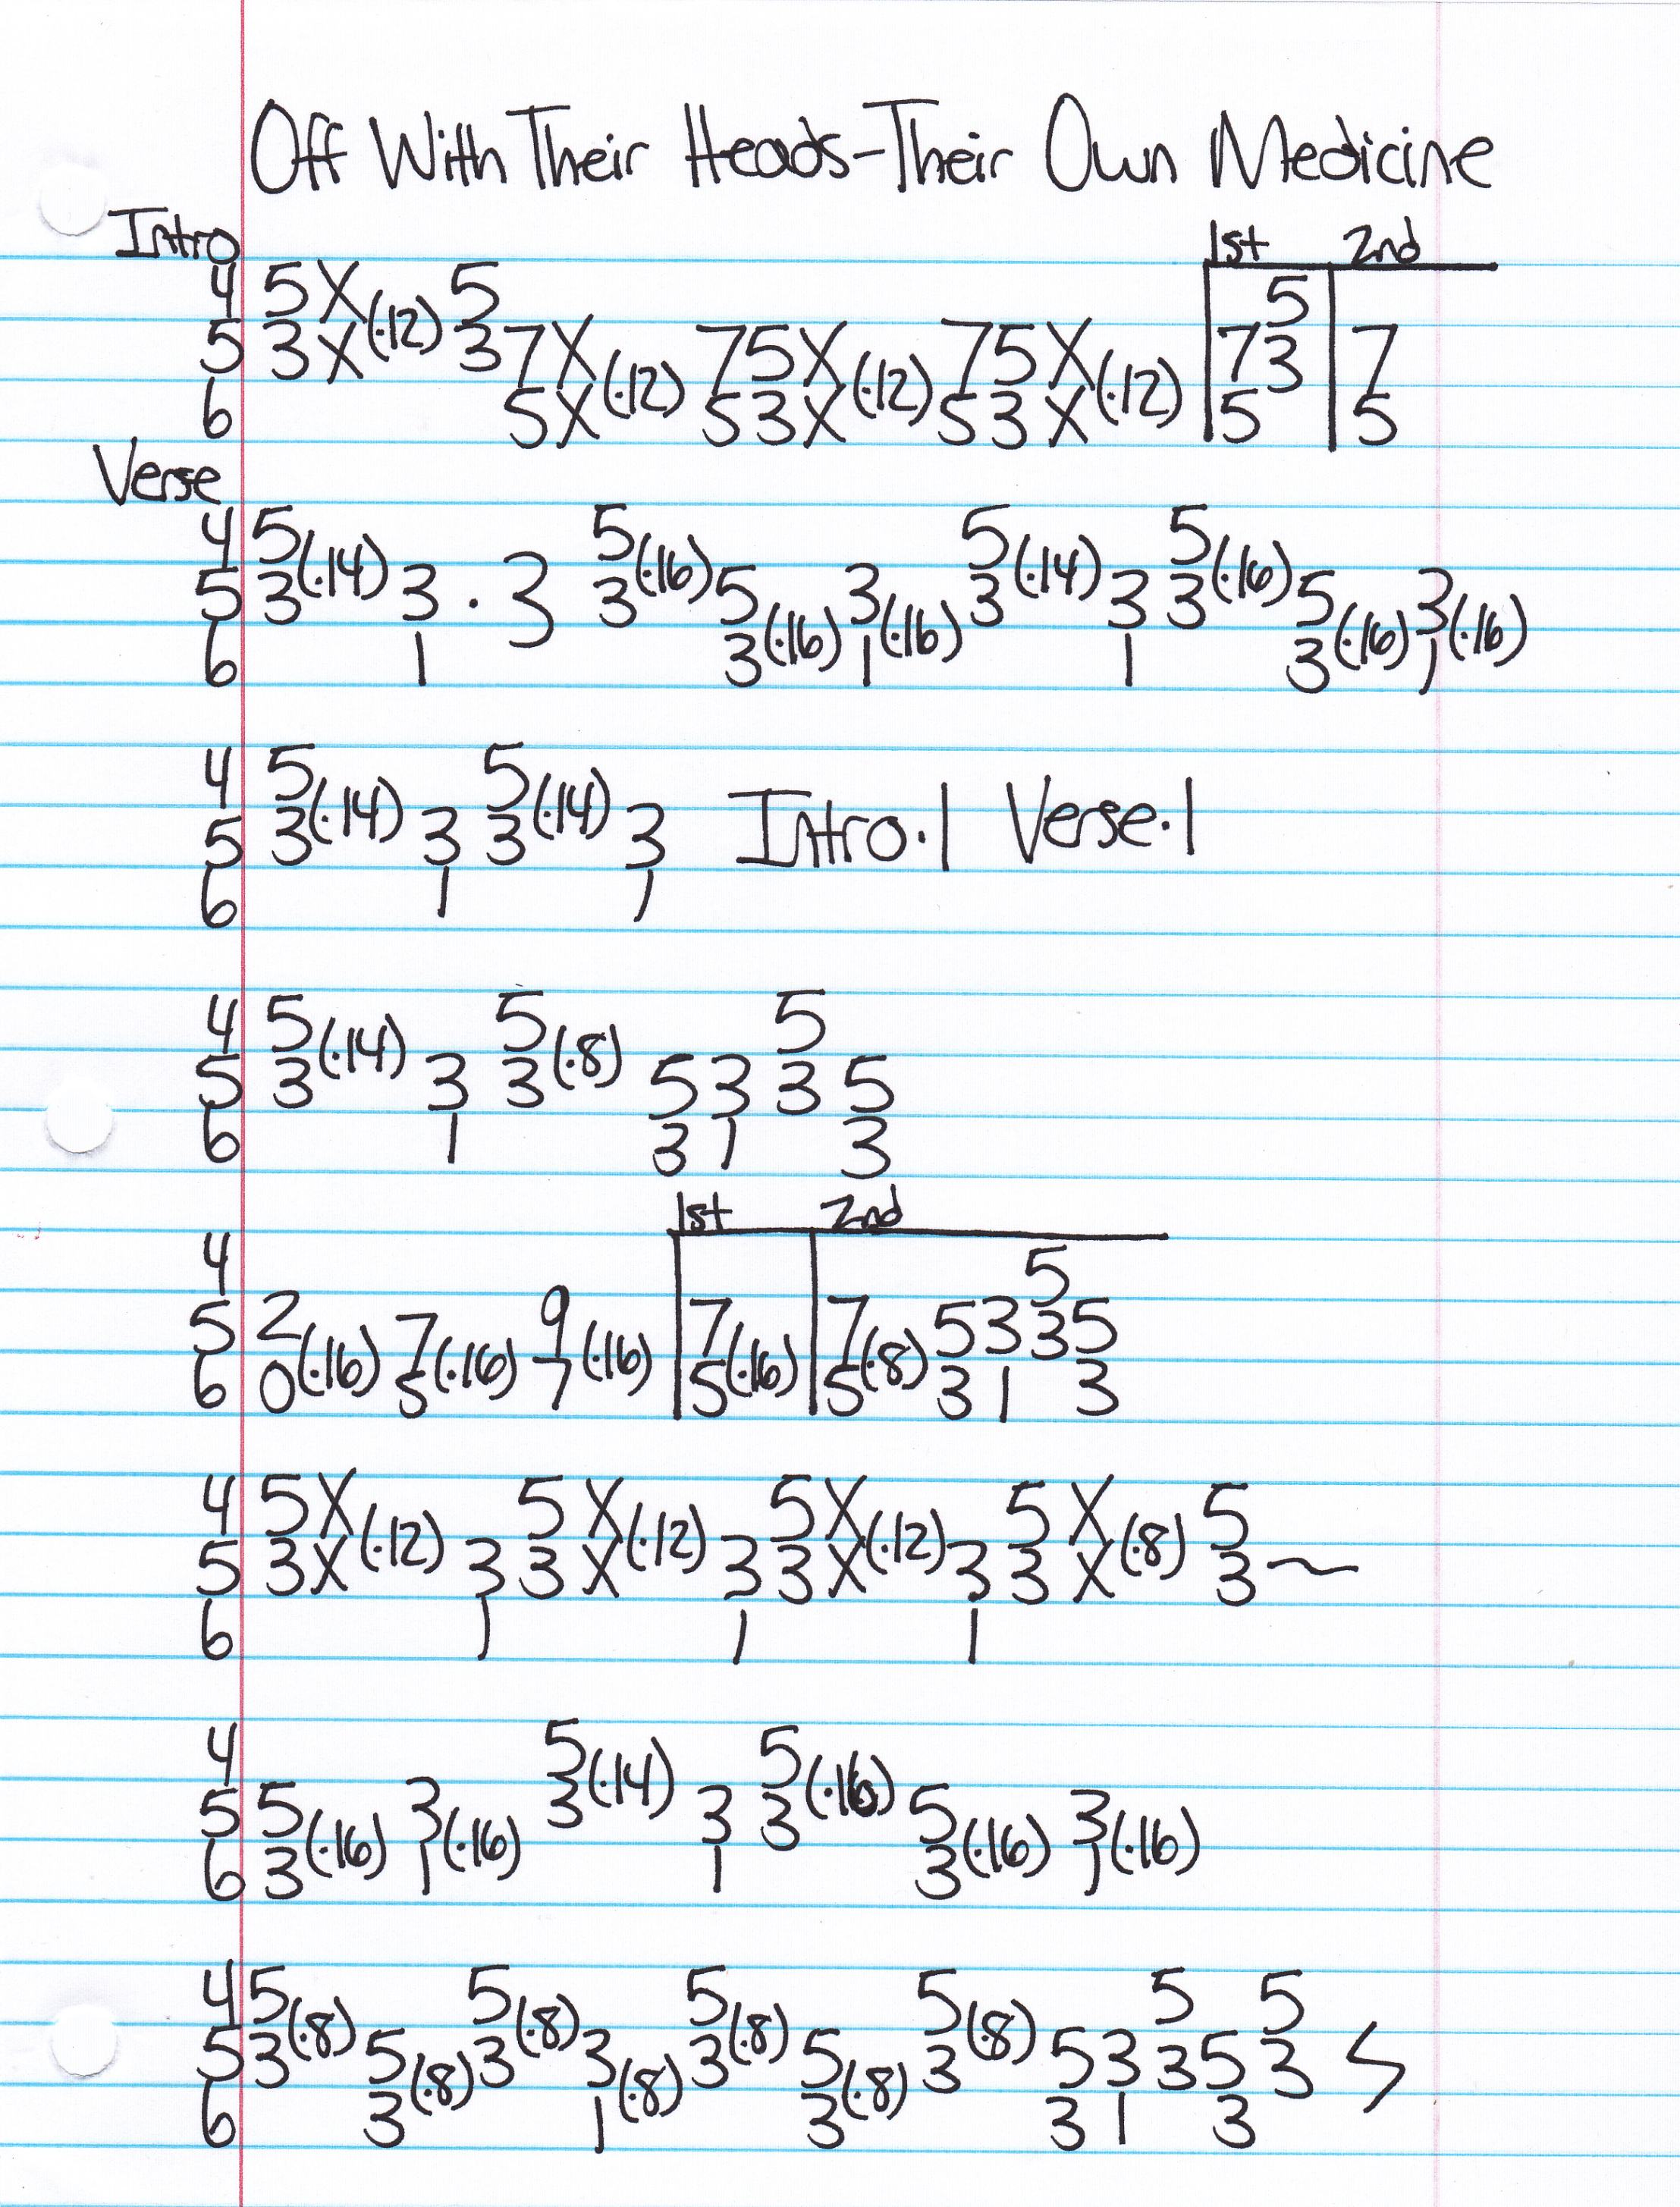 Off With Their Heads-Their Own Medicine
Intro
1st 2nd
4 5X 5 5
5 3X(·12) 37X 75X 75X 73 7
6 5X(·12) 53X(·12) 53X(·12) 5 5
Verse
4 5 5 5 5
5 3(·14) 3 · 3 3(·16) 5 3 3(·14) 3 3(·16) 5 3
6 1 3(·16) 1(·16) 1 3(·16) 1(·16)
4 5 5
5 3(·14) 3 3(·14) 3 Intro·1 Verse·1
6 1 1
4 5 5 5
5 3(·14) 3 3(·8) 5 3 3 5
6 1 3 1 3
1st 2nd
4 5
5 2 7 9 7 7 5 3 3 5
6 0(·16) 5(·16) 7(·16) 5(·16) 5(·8) 3 1 3
4 5X 5X 5X 5X 5
5 3X(·12) 3 3X(·12) 3 3X(·12) 3 3X(·8) 3~
6 1 1 1
4 5 5
5 5 3 3(·14) 3 3(·16) 5 3
6 3(·16) 1(·16) 1 3(·16) 1(·16)
4 5 5 5 5 5 5
5 3(·8) 5 3(·8) 3 3(·8) 5 3(·8) 5 3 3 5 3
6 3(·8) 1(·8) 3(·8) 3 1 3